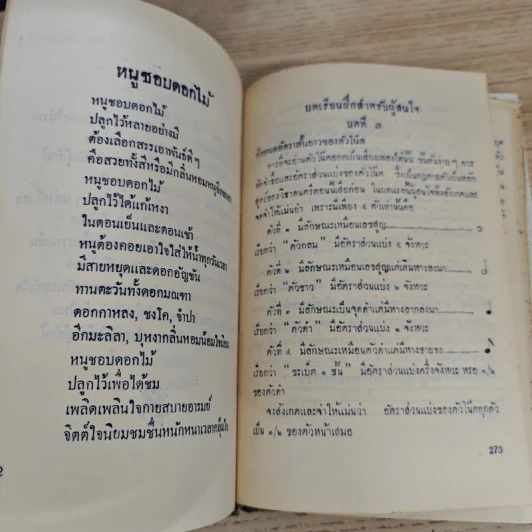 หนูชอบดอกไม้
หนูชอบดอกไม้
ปลูกไว้หลายอย่างมี
ต้องเลือกสรรเอาพันธ์ดี ๆ
คือสวยทั้งสีหรือมีกลิ่นหอม
หนูชอบดอกไม้
ปลูกไว้ได้แก้เหงา
ในตอนเย็นและตอนเช้า
หนูต้องคอยเอาใจใส่ให้น้ำทุกวันเวลา
มีสายหยุดและดอกอัญชัน
ทานตะวันทั้งดอกมณฑา
ดอกกาหลง, ชงโค, จำปา
อีกมะลิลา, บุหงากลิ่นหอม
หนูชอบดอกไม้
ปลูกไว้เพื่อได้ชม
เพลิดเพลินใจกายสบายอารมย์
จิตต์ใจนิยมชมชื่นหนักหนาเวลา
2
บทเรียนฝึกสำหรับผู้สนใจ
บทที่ ๑
การที่จะอ่านตัวโน้ตออกเป็นเสียงเพลงได้นั้น การ
จำชื่อและอัตราส่วนแบ่งของตัวโน้ต
จำให้แม่นยำ เพราะมีเพียง ๔ ตัวเท่านั้นคือ
ตัวที่ ๑ มีลักษณะเหมือนเลขสูญ
เรียกว่า "ตัวกลม" มีอัตราส่วนแบ่ง ๔ จังหวะ
ตัวที่ ๒ มีลักษณะเหมือนเลขสูญแต่เติมหางลงมา
เรียกว่า "ตัวขาว" มีอัตราส่วนแบ่ง ๒ จังหวะ
ตัวที่ ๓ มีลักษณะเป็นจุดดำแต่มีหางลากลงมา
เรียกว่า "ตัวดำ" มีอัตราส่วนแบ่ง ๑ จังหวะ
ตัวที่ ๔ มีลักษณะเหมือนตัวดำแต่มีหาง
เรียกว่า "ขะเบ็ต ๑ ชั้น" มีอัตราส่วนแบ่งครึ่งจังหวะ หรือ ๑/๒
ของตัวดำ
จงสังเกตและจำให้แม่นว่า อัตราส่วนแบ่งของตัวโน้ตทุกตัว
เป็น ๑/๒ ของตัวหน้าเสมอ
273